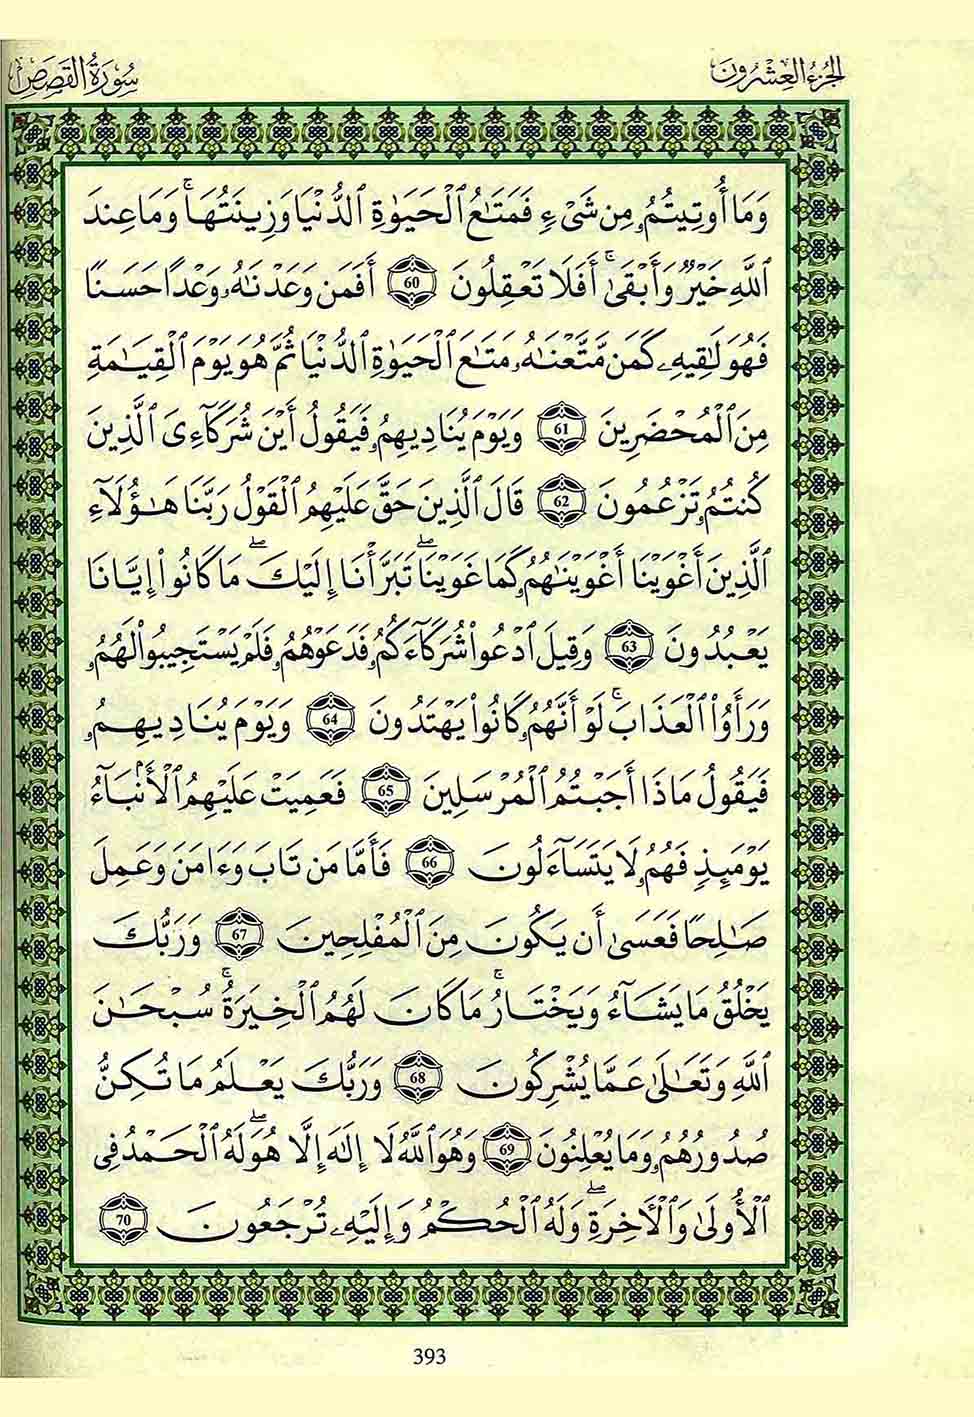 الجزء العشرون
سورة القصص
وَمَا أُوتِيتُمُۥ مِن شَىْءٍ فَمَتَٰعُ ٱلْحَيَوٰةِ ٱلدُّنْيَا وَزِينَتُهَا ۚ وَمَا عِندَ
ٱللَّهِ خَيْرٌ وَأَبْقَىٰ ۚ أَفَلَا تَعْقِلُونَ 60 أَفَمَن وَعَدْنَٰهُۥ وَعْدًا حَسَنًا
فَهُوَ لَٰقِيهِۦ كَمَن مَّتَّعْنَٰهُۥ مَتَٰعَ ٱلْحَيَوٰةِ ٱلدُّنْيَا ثُمَّ هُوَ يَوْمَ ٱلْقِيَٰمَةِ
مِنَ ٱلْمُحْضَرِينَ 61 وَيَوْمَ يُنَادِيهِمُۥ فَيَقُولُ أَيْنَ شُرَكَآءِىَ ٱلَّذِينَ
كُنتُمُۥ تَزْعُمُونَ 62 قَالَ ٱلَّذِينَ حَقَّ عَلَيْهِمُ ٱلْقَوْلُ رَبَّنَا هَٰٓؤُلَآءِ
ٱلَّذِينَ أَغْوَيْنَا أَغْوَيْنَٰهُمُۥ كَمَا غَوَيْنَا ۖ تَبَرَّأْنَا إِلَيْكَ ۖ مَا كَانُوا۟ إِيَّانَا
يَعْبُدُونَ 63 وَقِيلَ ٱدْعُوا۟ شُرَكَآءَكُمُۥ فَدَعَوْهُمُۥ فَلَمْ يَسْتَجِيبُوا۟ لَهُمُۥ
وَرَأَوُا۟ ٱلْعَذَابَ ۚ لَوْ أَنَّهُمُۥ كَانُوا۟ يَهْتَدُونَ 64 وَيَوْمَ يُنَادِيهِمُۥ
فَيَقُولُ مَاذَا أَجَبْتُمُ ٱلْمُرْسَلِينَ 65 فَعَمِيَتْ عَلَيْهِمُ ٱلْأَنۢبَآءُ
يَوْمَئِذٍ فَهُمُۥ لَا يَتَسَآءَلُونَ 66 فَأَمَّا مَن تَابَ وَءَامَنَ وَعَمِلَ
صَٰلِحًا فَعَسَىٰ أَن يَكُونَ مِنَ ٱلْمُفْلِحِينَ 67 وَرَبُّكَ
يَخْلُقُ مَا يَشَآءُ وَيَخْتَارُ ۚ مَا كَانَ لَهُمُ ٱلْخِيَرَةُ ۚ سُبْحَٰنَ
ٱللَّهِ وَتَعَٰلَىٰ عَمَّا يُشْرِكُونَ 68 وَرَبُّكَ يَعْلَمُ مَا تُكِنُّ
صُدُورُهُمُۥ وَمَا يُعْلِنُونَ 69 وَهُوَ ٱللَّهُ لَا إِلَٰهَ إِلَّا هُوَ ۖ لَهُ ٱلْحَمْدُ فِى
ٱلْأُولَىٰ وَٱلْأَخِرَةِ ۖ وَلَهُ ٱلْحُكْمُ وَإِلَيْهِۦ تُرْجَعُونَ 70
393